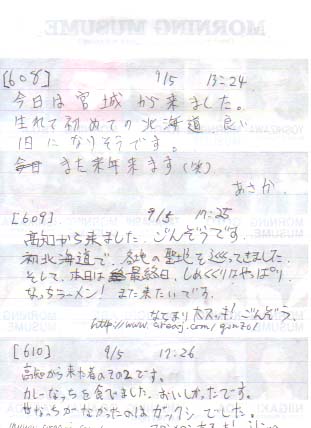 MORNING MUSUME
[608] 9/5 13:24
今日は宮城から来ました。
生れて初めての北海道 良い
1日になりそうです。
また来年来ます(笑)
あさか
[609] 9/5 17:25
高知から来ました、ごんぞうです。
初北海道で、各地の聖地を巡ってきました。
そして、本日は最終日、しめくくりはやっぱり、
なっちラーメン! また来たいです。
なてまり大スッキ! ごんぞう
http://www.
[610] 9/5 17:26
高知から来た者その2です。
カレーなっちを食べました。おいしかったです。
がなかったのはガックシでした。